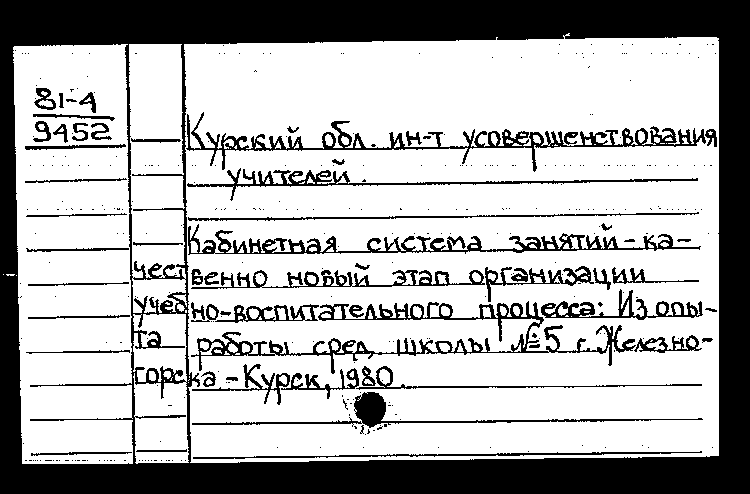 81-4
9452
Курский обл. ин-т усовершенствования
учителей.
Кабинетная система занятий - ка-
чественно новый этап организации
учебно-воспитательного процесса: Из опы-
та работы сред. школы №5 г. Железно-
горска - Курск, 1980.